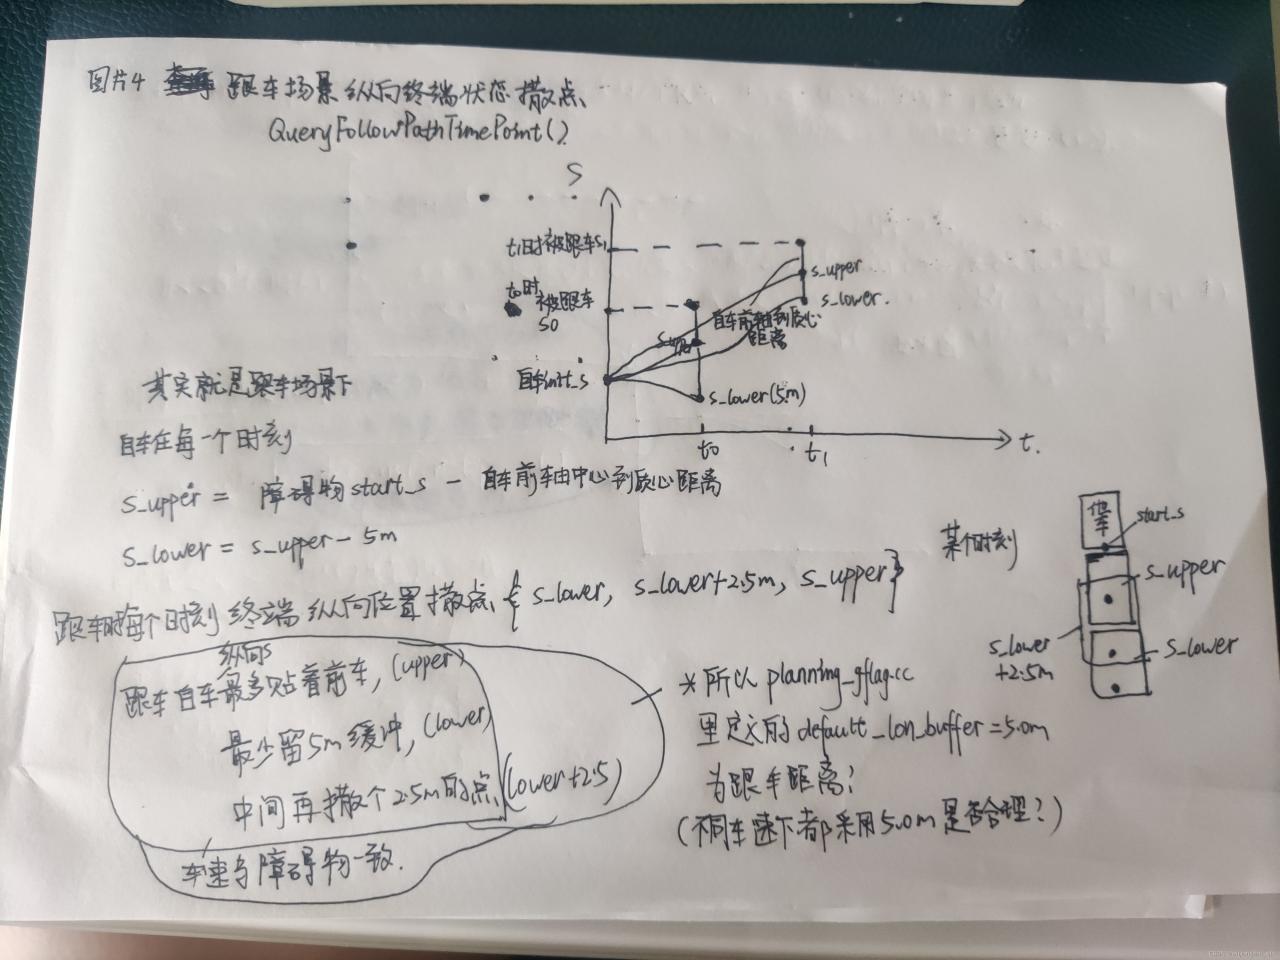 图片4 跟车场景纵向终端状态撒点
QueryFollowPathTimePoint()
S
t1时被跟车s1
s_upper
s_lower.
t0时
被跟车
S0
自车前轴到质心
距离
自车init_s
s_lower(5m)
t0
t1
t.
其实就是跟车场景下
自车在每一个时刻
s_upper = 障碍物start_s - 自车前车由中心到质心距离
s_lower = s_upper - 5m
跟车时每个时刻终端纵向位置撒点 { s_lower, s_lower+2.5m, s_upper}
某个时刻
他车
start_s
s_upper
s_lower
s_lower
+2.5m
纵向s
跟车自车最多贴着前车, (upper)
最少留5m缓冲, (lower)
中间再撒个2.5m的点 (lower+2.5)
车速与障碍物一致.
* 所以 planning_gflag.cc
里定义的default_lon_buffer=5.0m
为跟车距离?
(不同车速下都采用5.0m是否合理?)